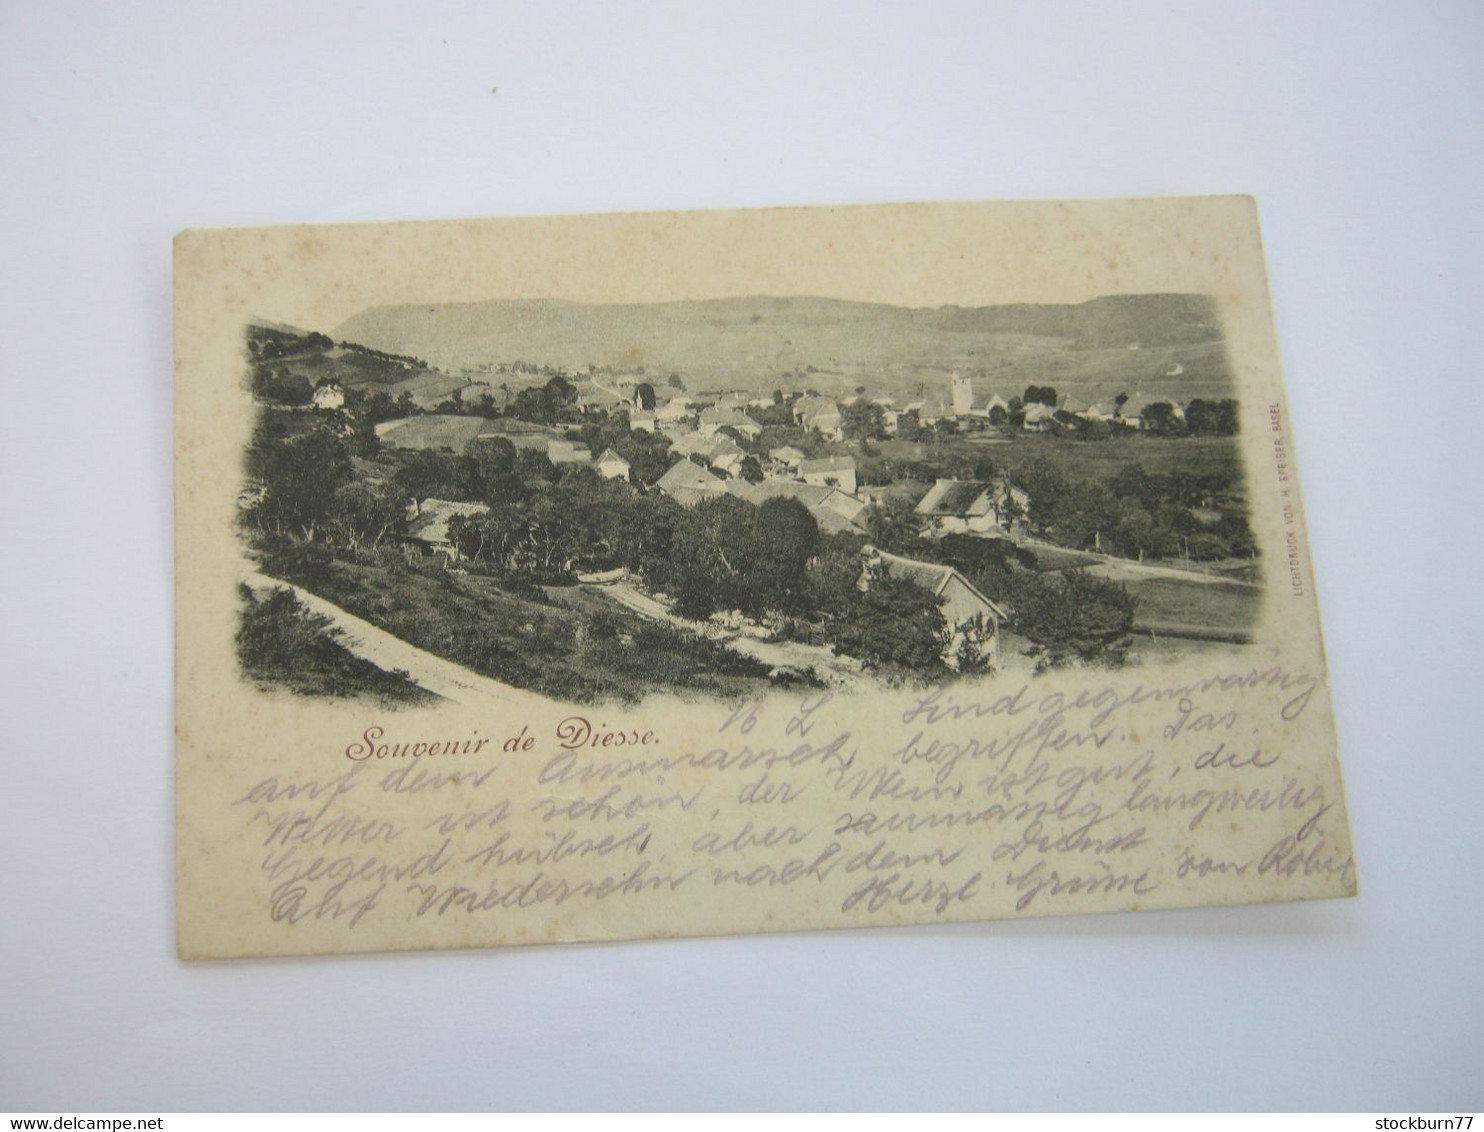 LICHTDRUCK VON H. SPEISER, BASEL
Souvenir de Diesse.
L Sind gegenwärtig
auf dem Ausmarsch begriffen. Das
Wetter ist schön, der Wein ist gut, die
Gegend hübsch, aber saumässig langweilig
Auf Wiedersehn nach dem Dienst
Herzl. Grüsse von
delcampe.net
stockburn77